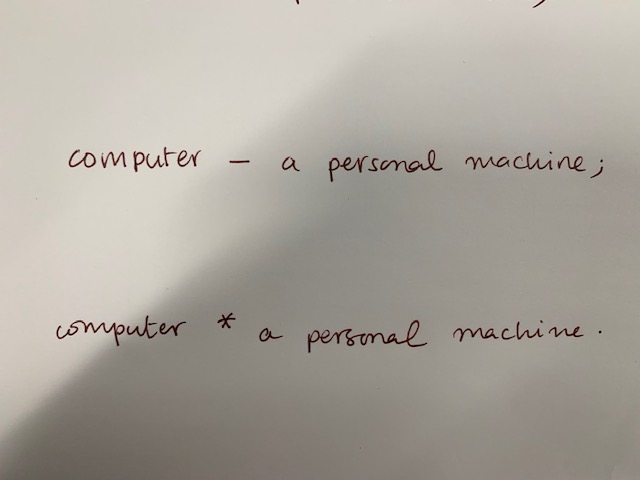 computer – a personal machine;
computer * a personal machine.